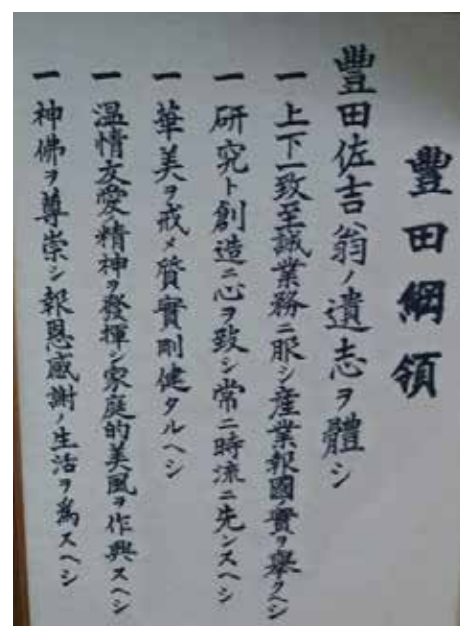 豐田綱領
豐田佐吉翁ノ遺志ヲ體シ
一 上下一致至誠業務ニ服シ産業報國ノ實ヲ擧クヘシ
一 研究ト創造ニ心ヲ致シ常ニ時流ニ先ンスヘシ
一 華美ヲ戒メ質實剛健タルヘシ
一 温情友愛精神ヲ發揮シ家庭的美風ヲ作興スヘシ
一 神佛ヲ尊崇シ報恩感謝ノ生活ヲ爲スヘシ